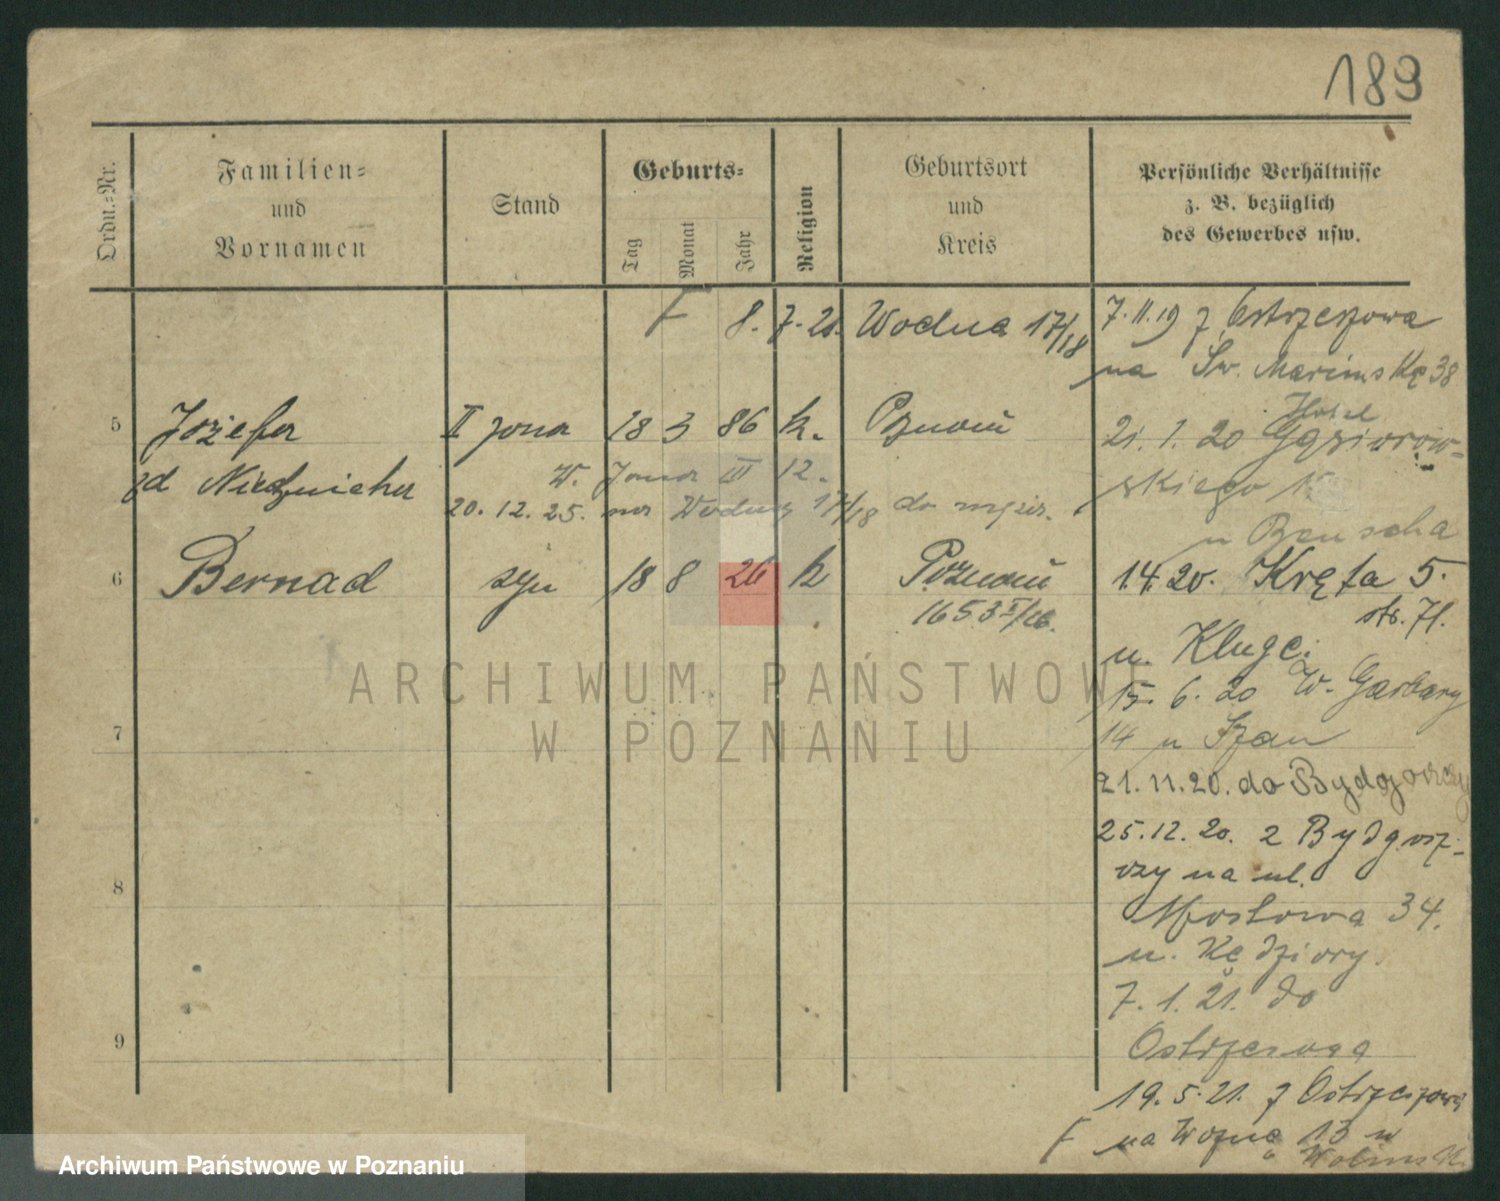 189
Ordn.-Nr.
Familien-
und
Vornamen
Stand
Geburts-
Tag
Monat
Jahr
Religion
Geburtsort
und
Kreis
Persönliche Verhältnisse
z. B. bezüglich
des Gewerbes usw.
8. 7. 21. Wodna 17/18
7. 11. 19 z Ostrzeszowa
na Św. Marcinską 38
5 Józefa II żona 18 3 86 k. Poznań
21. 1. 20 Hotel
Gąsiorow-
skiego
zd
W. żona III 12.
20. 12. 25. na Wodną 17/18 do
6 Bernad syn 18 8 26 k Poznań
1653 I/26.
1.4.20. Kręta 5.
str. 71.
u. Kluge.
15. 6. 20 W. Garbary
14 u
7
21. 11. 20. do Bydgoszczy
25. 12. 20. z Bydgosz-
czy na ul.
8
Mostową 34.
u. Kędziory.
7. 1. 21. do
9
Ostrzeszowa
19. 5. 21. z Ostrzeszowa
na Wozną 13 u
ARCHIWUM PAŃSTWOWE
W POZNANIU
Archiwum Państwowe w Poznaniu